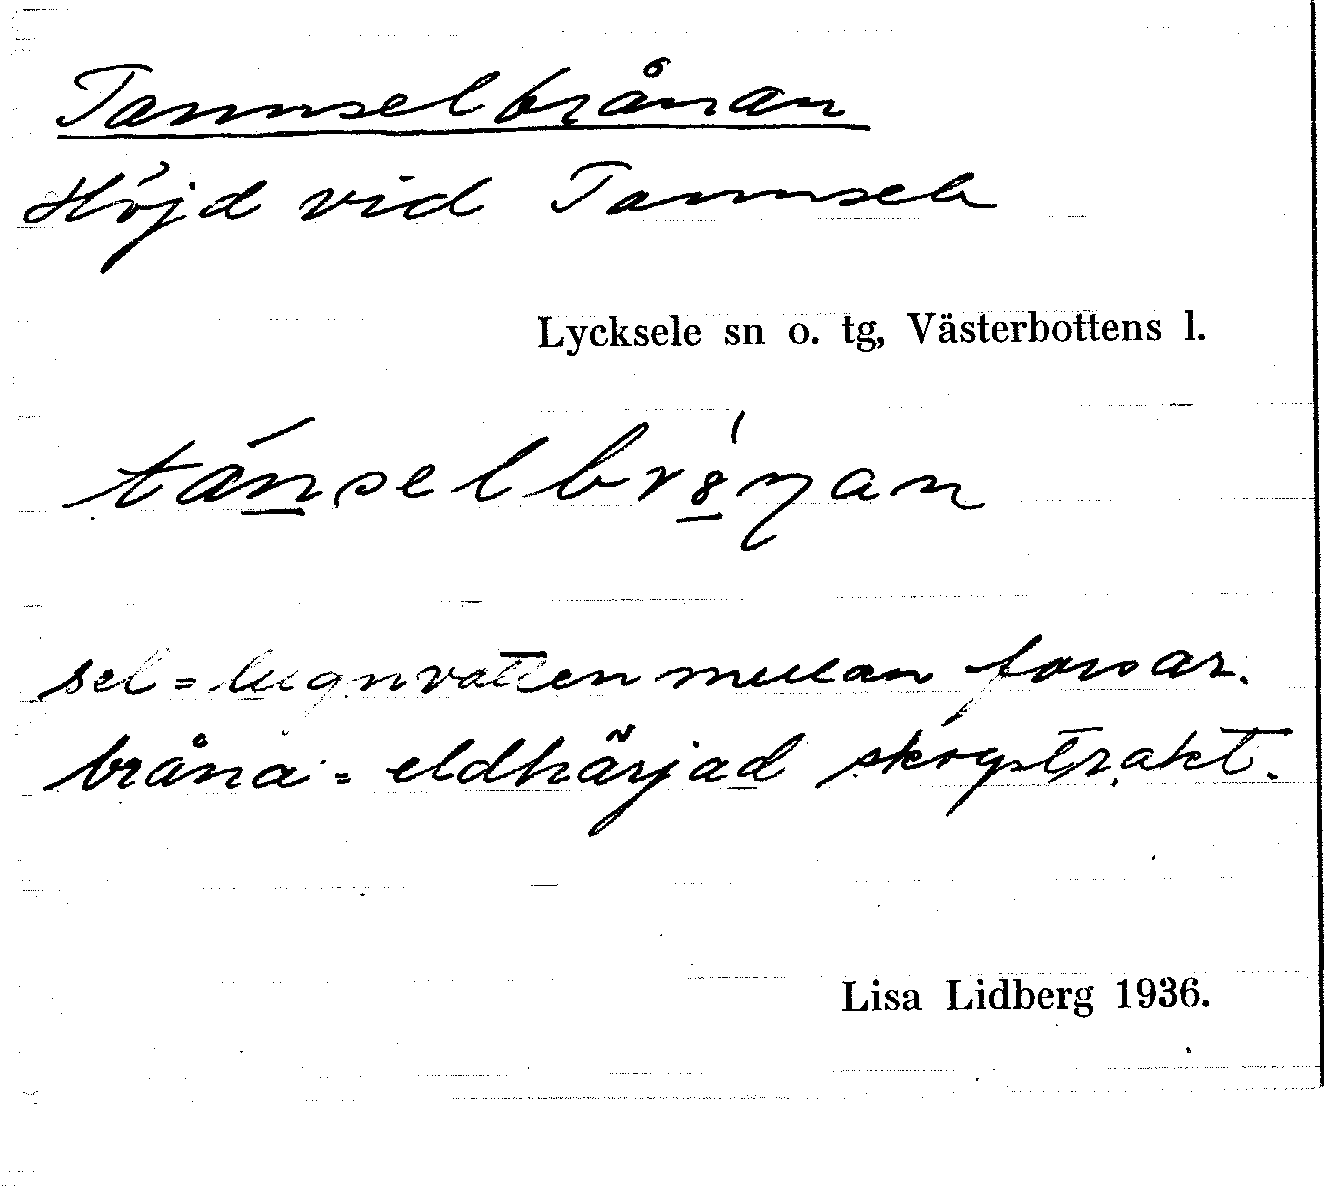 Tannselbrånan
Höjd vid Tannsele
Lycksele sn o. tg, Västerbottens l.
tánselbrȣ́ŋan
sel = lugnvatten mellan forsar.
bråna = eldhärjad skogstrakt.
Lisa Lidberg 1936.